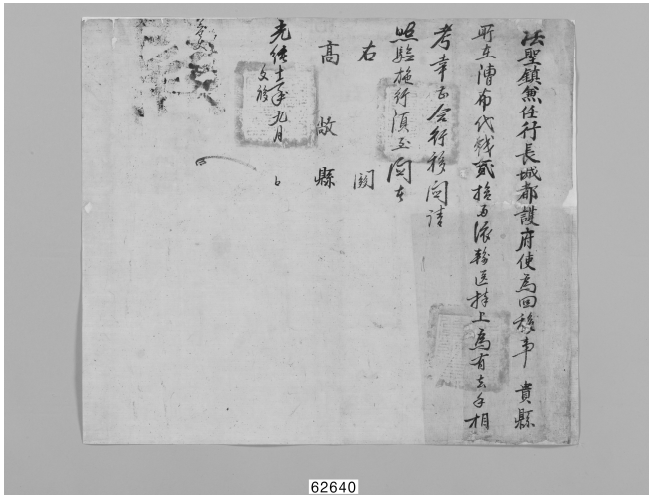 法聖鎭兼任行長城都護府使爲回移事 貴縣
所在漕布代錢貳拾兩依數送持上爲有去乎相
考幸甚合行移關請
照驗施行須至關者
右 關
高敞縣
光緖十一年九月 日
文移
62640